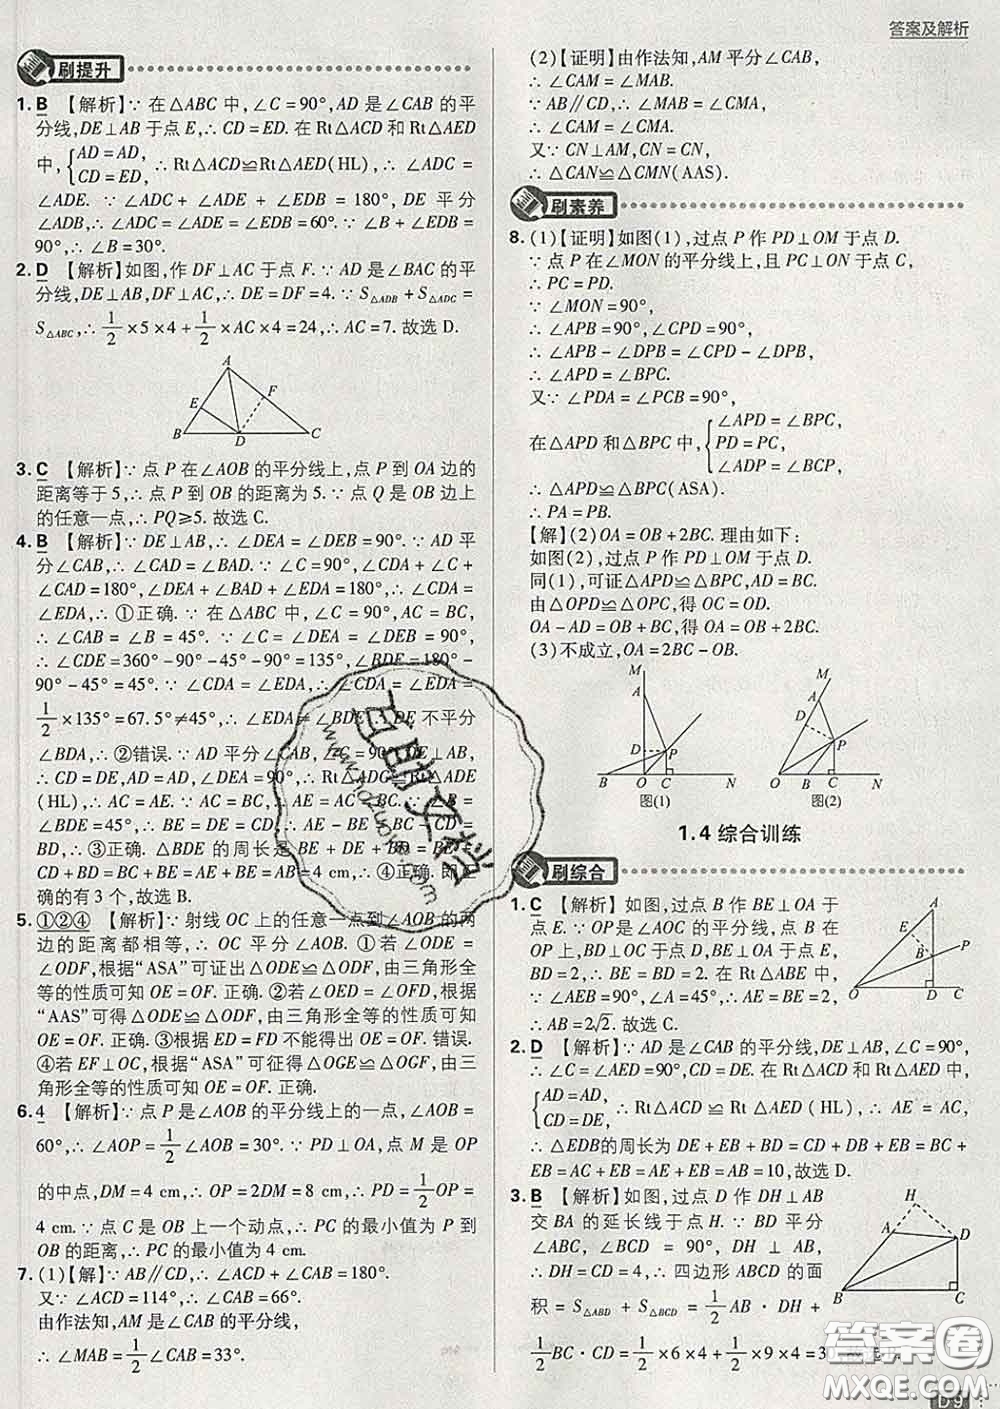 答案及解析
刷提升
1. B 【解析】∵ 在△ABC 中,∠C = 90°,AD 是∠CAB 的平
分线,DE⊥AB 于点 E,∴ CD = ED. 在 Rt△ACD 和 Rt△AED
中,{AD = AD, CD = ED, ∴ Rt△ACD≌Rt△AED(HL),∴ ∠ADC =
∠ADE. ∵ ∠ADC + ∠ADE + ∠EDB = 180°,DE 平分
∠ADB,∴ ∠ADC = ∠ADE = ∠EDB = 60°. ∴ ∠B + ∠EDB =
90°,∴ ∠B = 30°.
2. D 【解析】如图,作 DF⊥AC 于点 F. ∵ AD 是∠BAC 的平
分线,DE⊥AB,DF⊥AC,∴ DE = DF = 4. ∵ S△ADB + S△ADC =
S△ABC,∴ 1/2 ×5×4 + 1/2 ×AC×4 = 24,∴ AC = 7. 故选 D.
A
E
F
B
D
C
3. C 【解析】∵ 点 P 在∠AOB 的平分线上,点 P 到 OA 边的
距离等于 5,∴ 点 P 到 OB 的距离为 5. ∵ 点 Q 是 OB 边上
的任意一点,∴ PQ≥5. 故选 C.
4. B 【解析】∵ DE⊥AB,∴ ∠DEA = ∠DEB = 90°. ∵ AD 平
分∠CAB,∴ ∠CAD = ∠BAD. ∵ ∠C = 90°,∠CDA + ∠C +
∠CAD = 180°,∠DEA + ∠BAD + ∠EDA = 180°,∴ ∠CDA =
∠EDA,∴ ①正确. ∵ 在△ABC 中,∠C = 90°,AC = BC,
∴ ∠CAB = ∠B = 45°. ∵ ∠C = ∠DEA = ∠DEB = 90°,
∴ ∠CDE = 360° - 90° - 45° - 90° = 135°,∠BDE = 180° -
90° - 45° = 45°. ∵ ∠CDA = ∠EDA,∴ ∠CDA = ∠EDA =
1/2 ×135° = 67.5°≠45°,∴ ∠EDA ≠ ∠BDE,∴ DE 不平分
∠BDA,∴ ②错误. ∵ AD 平分∠CAB,∠C = 90°,DE⊥AB,
∴ CD = DE,AD = AD,∠DEA = 90°,∴ Rt△ADC≌Rt△ADE
(HL),∴ AC = AE. ∵ AC = BC,∴ AE = BC. ∵ ∠B =
∠BDE = 45°,∴ BE = DE = CD,∴ AE - BE = BC - CD =
BD,∴ ③正确. △BDE 的周长是 BE + DE + BD = BE +
CD + BD = BE + BC = BE + AE = AB,∴ ④正确. 即正
确的有 3 个,故选 B.
5. ①②④ 【解析】∵ 射线 OC 上的任意一点到∠AOB 的两
边的距离都相等,∴ OC 平分∠AOB. ①若∠ODE =
∠ODF,根据“ASA”可证出△ODE≌△ODF,由三角形全
等的性质可知 OE = OF. 正确. ②若∠OED = ∠OFD,根据
“AAS”可得△ODE≌△ODF,由三角形全等的性质可知
OE = OF. 正确. ③根据 ED = FD 不能得出 OE = OF. 错误.
④若 EF⊥OC,根据“ASA”可得△OGE≌△OGF,由三
角形全等的性质可知 OE = OF. 正确.
6. 4 【解析】∵ 点 P 是∠AOB 的平分线上的一点,∠AOB =
60°,∴ ∠AOP = 1/2 ∠AOB = 30°. ∵ PD⊥OA,点 M 是 OP
的中点,DM = 4 cm,∴ OP = 2DM = 8 cm,∴ PD = 1/2 OP =
4 cm. ∵ 点 C 是 OB 上一个动点,∴ PC 的最小值为 P 到
OB 的距离,∴ PC 的最小值为 4 cm.
7. (1)【解】∵ AB∥CD,∴ ∠ACD + ∠CAB = 180°.
又∵ ∠ACD = 114°,∴ ∠CAB = 66°.
由作法知,AM 是∠CAB 的平分线,
∴ ∠MAB = 1/2 ∠CAB = 33°.
(2)【证明】由作法知,AM 平分∠CAB,
∴ ∠CAM = ∠MAB.
∵ AB∥CD,∴ ∠MAB = ∠CMA,
∴ ∠CAM = ∠CMA.
又∵ CN⊥AM,∴ ∠CNA = ∠CNM.
∴ △CAN≌△CMN(AAS).
刷素养
8. (1)【证明】如图(1),过点 P 作 PD⊥OM 于点 D.
∵ 点 P 在∠MON 的平分线上,且 PC⊥ON 于点 C,
∴ PC = PD.
∵ ∠MON = 90°,
∴ ∠APB = 90°,∠CPD = 90°,
∴ ∠APB - ∠DPB = ∠CPD - ∠DPB,
∴ ∠APD = ∠BPC.
又∵ ∠PDA = ∠PCB = 90°,
在△APD 和△BPC 中,{∠APD = ∠BPC, PD = PC, ∠ADP = ∠BCP,
∴ △APD≌△BPC(ASA).
∴ PA = PB.
【解】(2)OA = OB + 2BC. 理由如下:
如图(2),过点 P 作 PD⊥OM 于点 D.
同(1),可证△APD≌△BPC,AD = BC.
由△OPD≌△OPC,得 OC = OD.
OA - AD = OB + BC,得 OA = OB + 2BC.
(3)不成立,OA = 2BC - OB.
M
A
D
P
B O C N
图(1)
M
A
D
P
O B C N
图(2)
1.4 综合训练
刷综合
1. C 【解析】如图,过点 B 作 BE⊥OA 于
点 E. ∵ OP 是∠AOC 的平分线,点 B 在
OP 上,BD⊥OC 于点 D,BE⊥OA 于点 E,
BD = 2,∴ BE = BD = 2. 在 Rt△ABE 中,
∵ ∠AEB = 90°,∠A = 45°,∴ AE = BE = 2,
∴ AB = 2√2. 故选 C.
A
E
B
P
O
D
C
2. D 【解析】∵ AD 是∠CAB 的平分线,DE⊥AB,∠C = 90°,
∴ ∠C = ∠AED = 90°,CD = DE. 在 Rt△ACD 和 Rt△AED 中,
{AD = AD, CD = DE, ∴ Rt△ACD ≌ Rt △AED (HL),∴ AE = AC,
∴ △EDB的周长为 DE + EB + BD = CD + DB + EB = BC +
EB = AC + EB = AE + EB = AB = 10,故选 D.
3. B 【解析】如图,过点 D 作 DH⊥AB
交 BA 的延长线于点 H. ∵ BD 平分
∠ABC,∠BCD = 90°,DH⊥AB,
∴ DH = CD = 4,∴ 四边形 ABCD 的面
积 = S△ABD + S△BCD = 1/2 AB · DH +
1/2 BC · CD = 1/2 ×6×4 + 1/2 ×9×4 = 3
H
A
D
B
C
答案圈
MXQE.COM
D 9